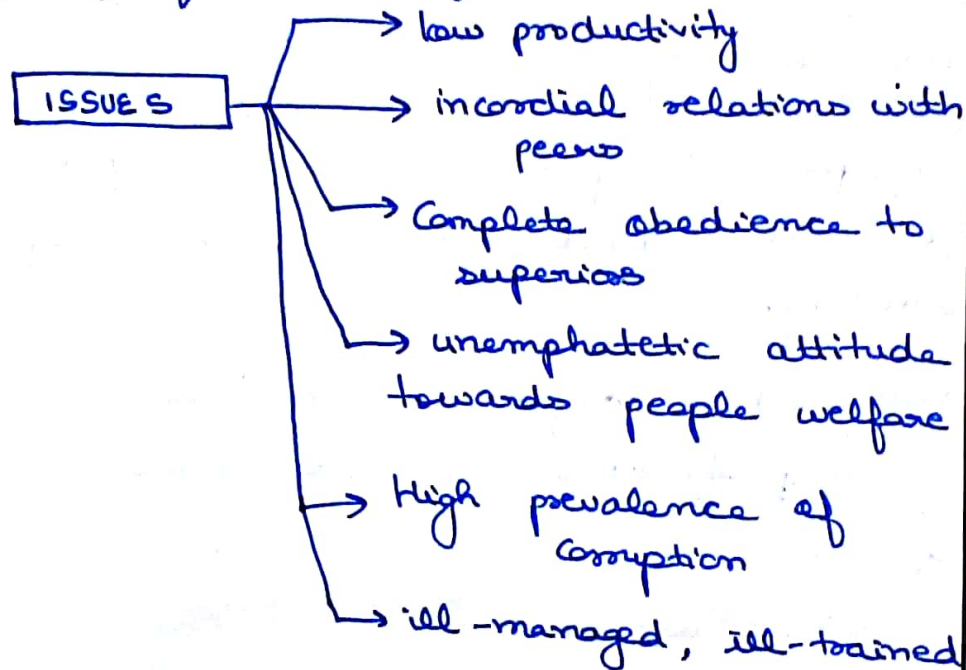 low productivity
ISSUES
incordial relations with
peers
Complete obedience to
superiors
unemphatetic attitude
towards people welfare
High prevalence of
corruption
ill-managed, ill-trained